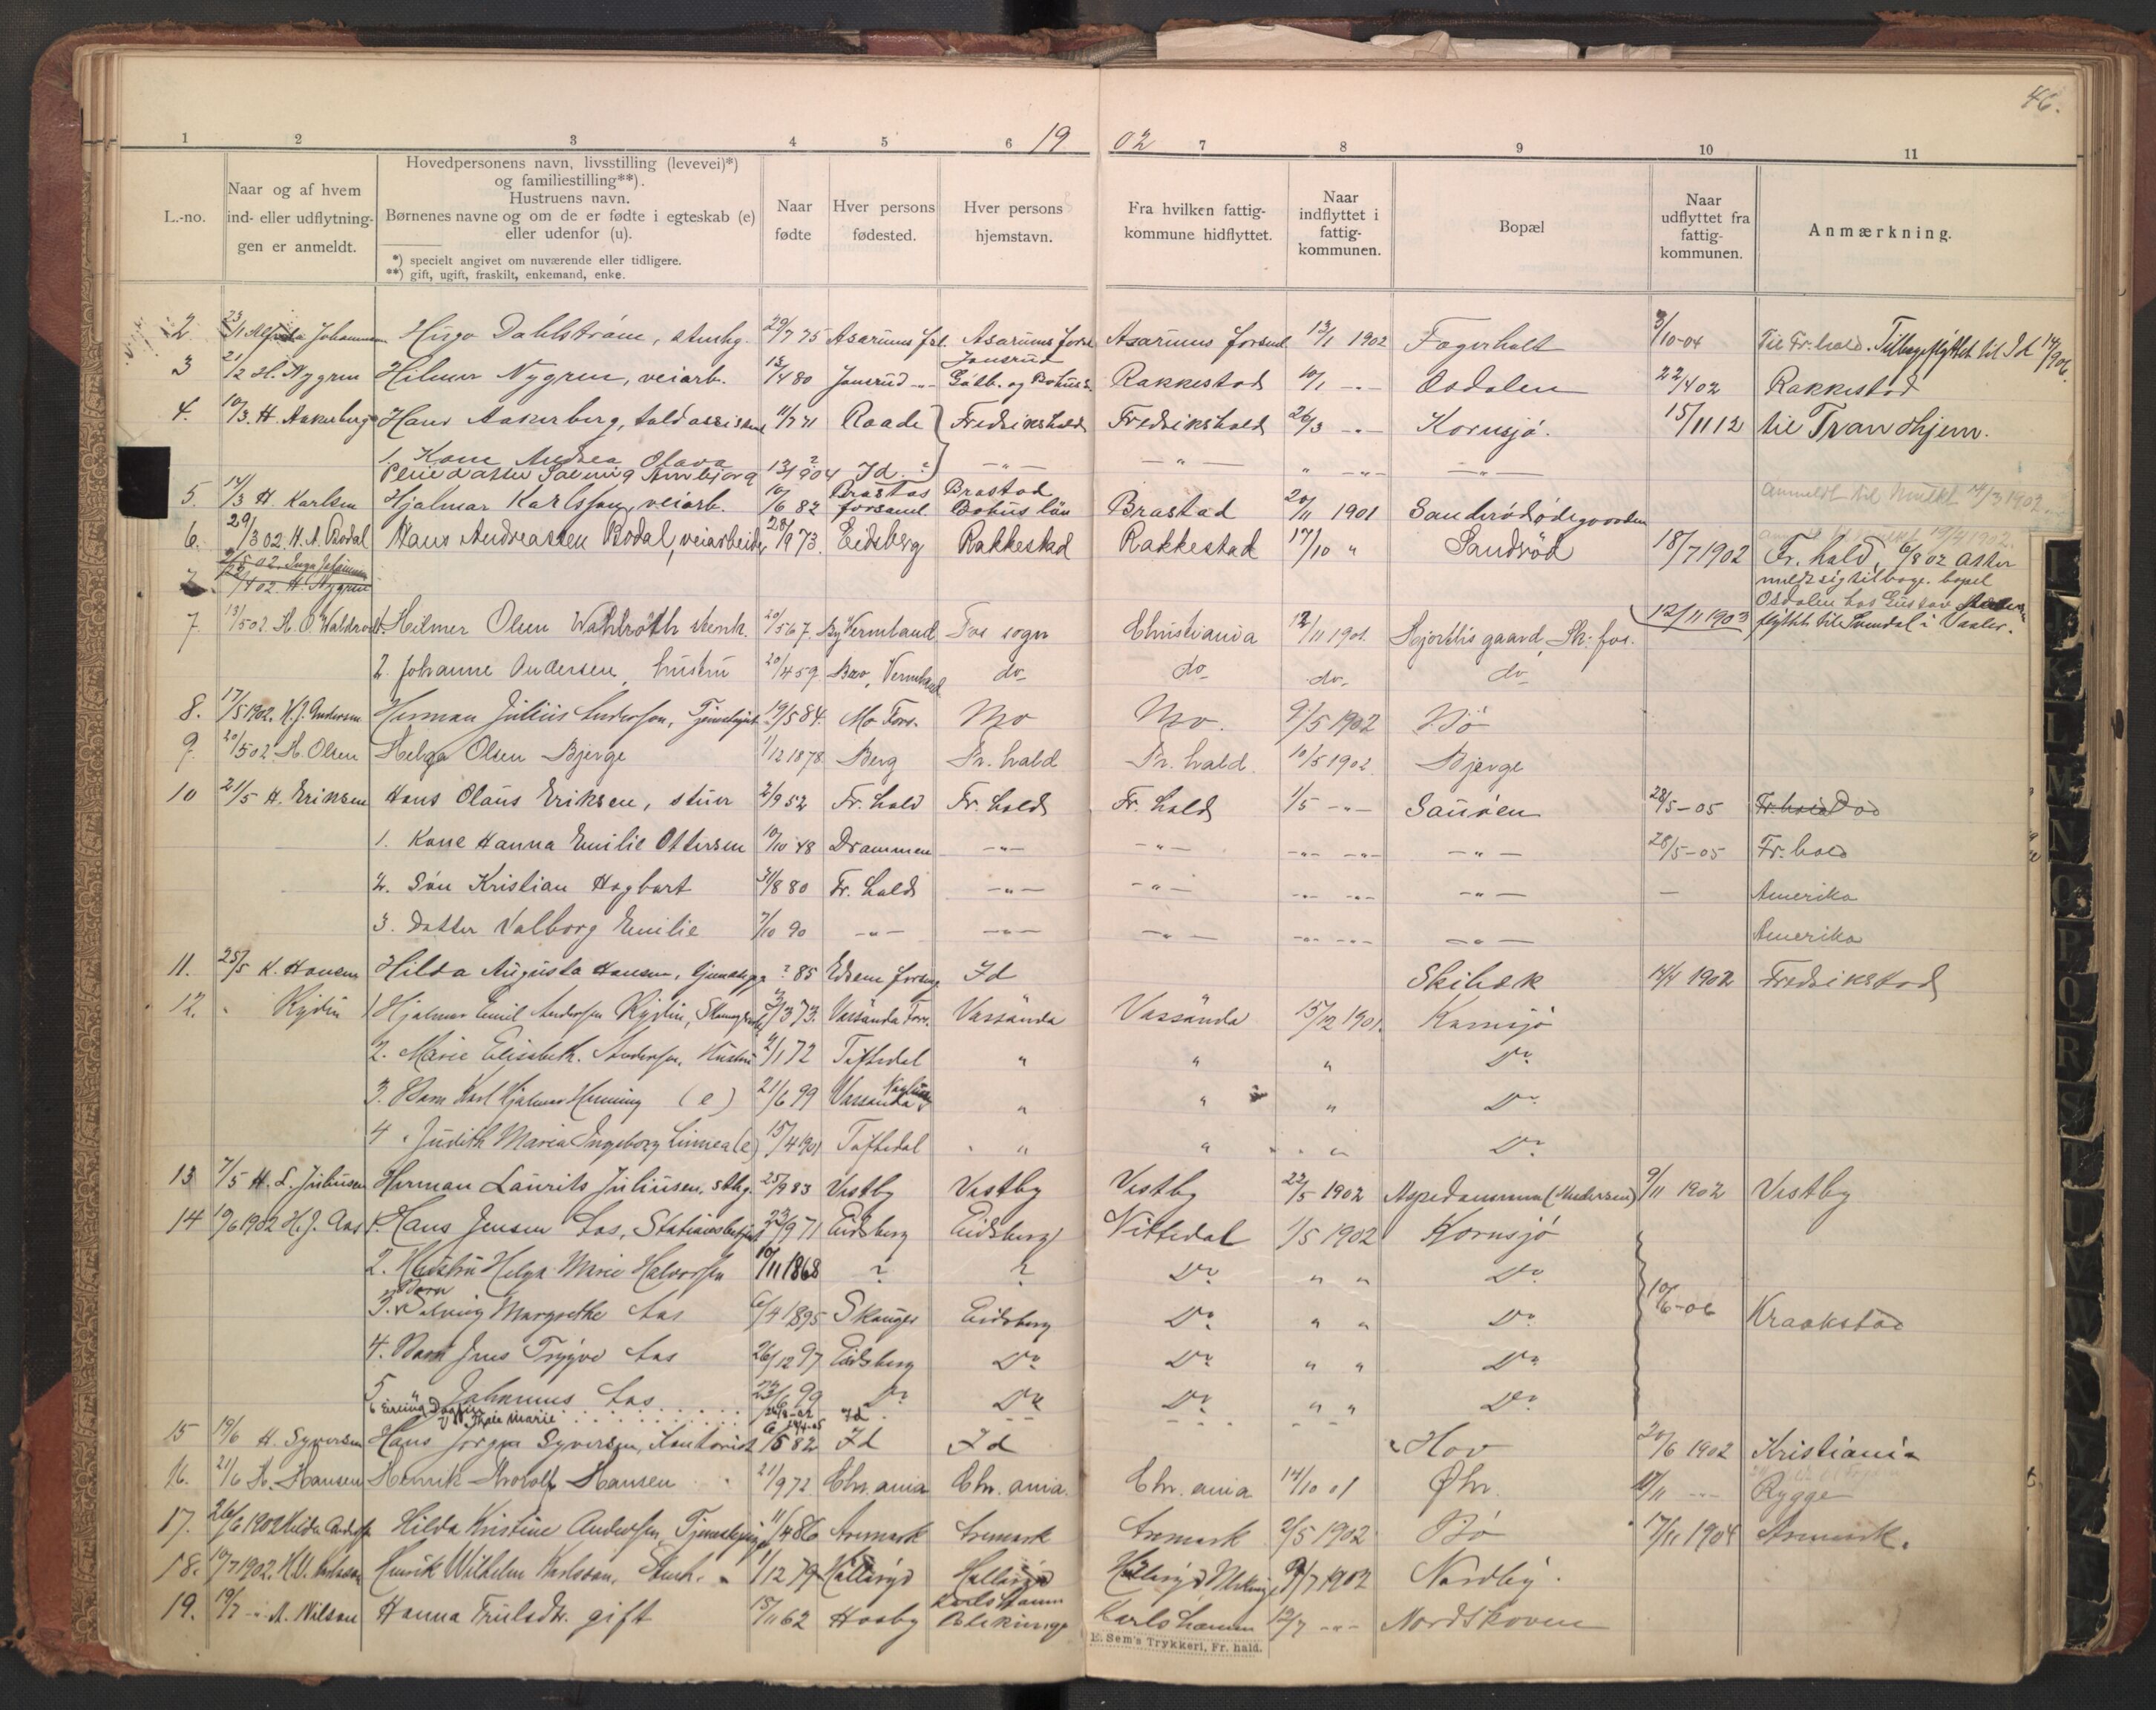 46.
19 02
1 2 3 4 5 6 7 8 9 10 11
L.-no.
Naar og af hvem ind- eller udflytningen er anmeldt.
Hovedpersonens navn, livsstilling (levevei)*) og familiestilling**).
Hustruens navn.
Børnenes navne og om de er fødte i egteskab (e) eller udenfor (u).
*) specielt angivet om nuværende eller tidligere.
**) gift, ugift, fraskilt, enkemand, enke.
Naar fødte
Hver persons fødested.
Hver persons hjemstavn.
Fra hvilken fattigkommune hidflyttet.
Naar indflyttet i fattigkommunen.
Bopæl
Naar udflyttet fra fattigkommunen.
Anmærkning.
2 23/1 Johannsen Hugo Dahlström, stenhg. 29/7 75 Asarums fsl. Asarums forsl Asarums forsml 13/1 1902 Fagerholt 3/10-04 Til Fr.hald. Tilbageflyttet til Id 14/9 06.
3 21/2 H. Nygren Hilmer Nygren, veiarb. 13/4 80 Jonsrud -"- Jonsrud Götb. og Bohus l. Rakkestad 10/1 -"- Osdalen 22/4 02 Rakkestad
4. 10/3. H. Aakerberg Hans Aakerberg, toldassistent 11/7 71 Raade Fredrikshald Fredrikshald 26/3 -"- Kornsjö. 15/11 12 til Trondhjem.
1. Kone Andrea Olava ? ? -"- -"- " -"- -"-
Pleiedatter Solveig Annbjorg 13/9 04 Id
5. 14/3 H Karlsen Hjalmar Karlsson, veiarb. 10/6 82 Brastad forsaml. Brastad Bohus län Brastad 20/11 1901 Sandrödödegaarden Anmeldt til 14/3 1902
6. 29/3 02. H. A. Bodal Hans Andreassen Bodal, veiarbeider 28/9 73. Eidsberg Rakkestad Rakkestad 17/10 " Sandröd 18/7 1902 Fr. hald, 6/8 02 atter meldt sig tilbage. bopel Osdalen hos Gustav
/5 02. Inga Johannsen
7 22/4 02 H. Nygren
7. 13/5 02. H. O. Waldroth 1. Hilmer Olsen Wahlroth stenh. 20/5 67. By Vermland Fos sogn Christiania 12/11 1901. Hjorthisgaard, Sk: fos. 12/11 1903 flyttet til Svendal i Vaaler.
2. Johanne Andersen, hustru 20/4 59. Bro, Vermland do do do. do
8. 17/5 1902. H. J. Andersen Herman Julius Andersson, Tjenestegut 19/5 84. Mo Fors. Mo Mo. 9/5 1902 Bö
9. 20/5 02 H. Olsen Helga Olsen Bjerge 1/12 1878 Berg Fr. hald Fr. hald. 10/5 1902. Bjerge
10 21/5 H. Eriksen Hans Olaus Eriksen, stuer 2/9 52 Fr. hald Fr. hald Fr. hald 1/5 -"- Sauöen 28/5-05 Fr. hald Död
1. Kone Hanna Emilie Ottersen 10/10 48 Drammen -"- -"- -"- -"- -"- 28/5-05 Fr. hald
2. Sön Kristian Hagbart 31/8 80 Fr. hald -"- -"- -"- -"- -"- — Amerika
3. Datter Valborg Emilie 7/10 90 -"- -"- -"- -"- -"- -"- Amerika
11. 25/5 K. Hansen Hilda Augusta Hansen, tjenestepige ? 85 Edsem forsmg Id Skibek 14/4 1902 Fredrikstad
12. " Rydin 1 Hjalmar Emil Andersson Rydin, 3/3 73. Vassända Fors. Vassända Vassända 15/12 1901. Kornsjö
2. Marie Elisabeth. Andersson, Hustru 9/1 72 Töftedal " " " Do
3. Barn Karl Hjalmar Henning (e) 21/6 99 Vassända Naglum " " " Do
4 " Judith Maria Ingeborg Linnea (e) 15/4 1901 Töftedal " " " Do
13 7/5 H. L. Juliusen Herman Laurits Juliusen, sthg. 25/9 83 Vestby Vestby Vestby 22/5 1902 Aspedammen (Andersen) 9/11 1902 Vestby
14 19/6 1902 H. J. Aas 1. Hans Jensen Aas, Stationsbetjent 23/9 71 Eidsberg Eidsberg Nittedal 1/5 1902 Kornsjö
2. Hustru Helga Marie Halvorsen 10/11 1868 ? ? Do " " Do
3. Barn Solveig Margrethe Aas 6/4 1895 Skauger Eidsberg Do " " Do 10/6-06 Kraakstad
4. Barn Jens Trygve Aas 26/12 97 Eidsberg Do Do " " Do
5 Johannes Aas 23/6 99 Do Do Do " " Do
6 Erling Dagfin 26/8-02 Id
7 Thea Marie 28/4-05
15 19/6 H. Syversen Hans Jörgen Syversen, Kontorist 6/5 82 Id Id Hov 20/6 1902 Kristiania
16. 21/6 H. Hansen Henrik Arolf Hansen 21/9 72 Chr. ania Chr. ania. Chr. ania 14/10 01 Øhr. 10/11 -"- Rygge
17. 26/6 1902 Hilda Andersen Hilda Kristine Andersen, Tjenestepige 11/4 86 Aremark Aremark Aremark 2/5 1902 Bö 17/11 1904 Aremark.
18. 10/7 1902. H. W. Karlsson Henrik Wilhelm Karlsson, Stenh. 1/12 79 Hallaryd Hallaryd Hallaryd 9/7 1902 Nordby.
19. 19/7 -"- A. Nilson Hanna Trulsdtr. gift 15/11 62 Hosby Karlshamn Blekinge Karlshamn 12/7 -"- Nordskoven
E. Sem's Trykkeri, Fr. hald.
K L M N O P Q R S T U